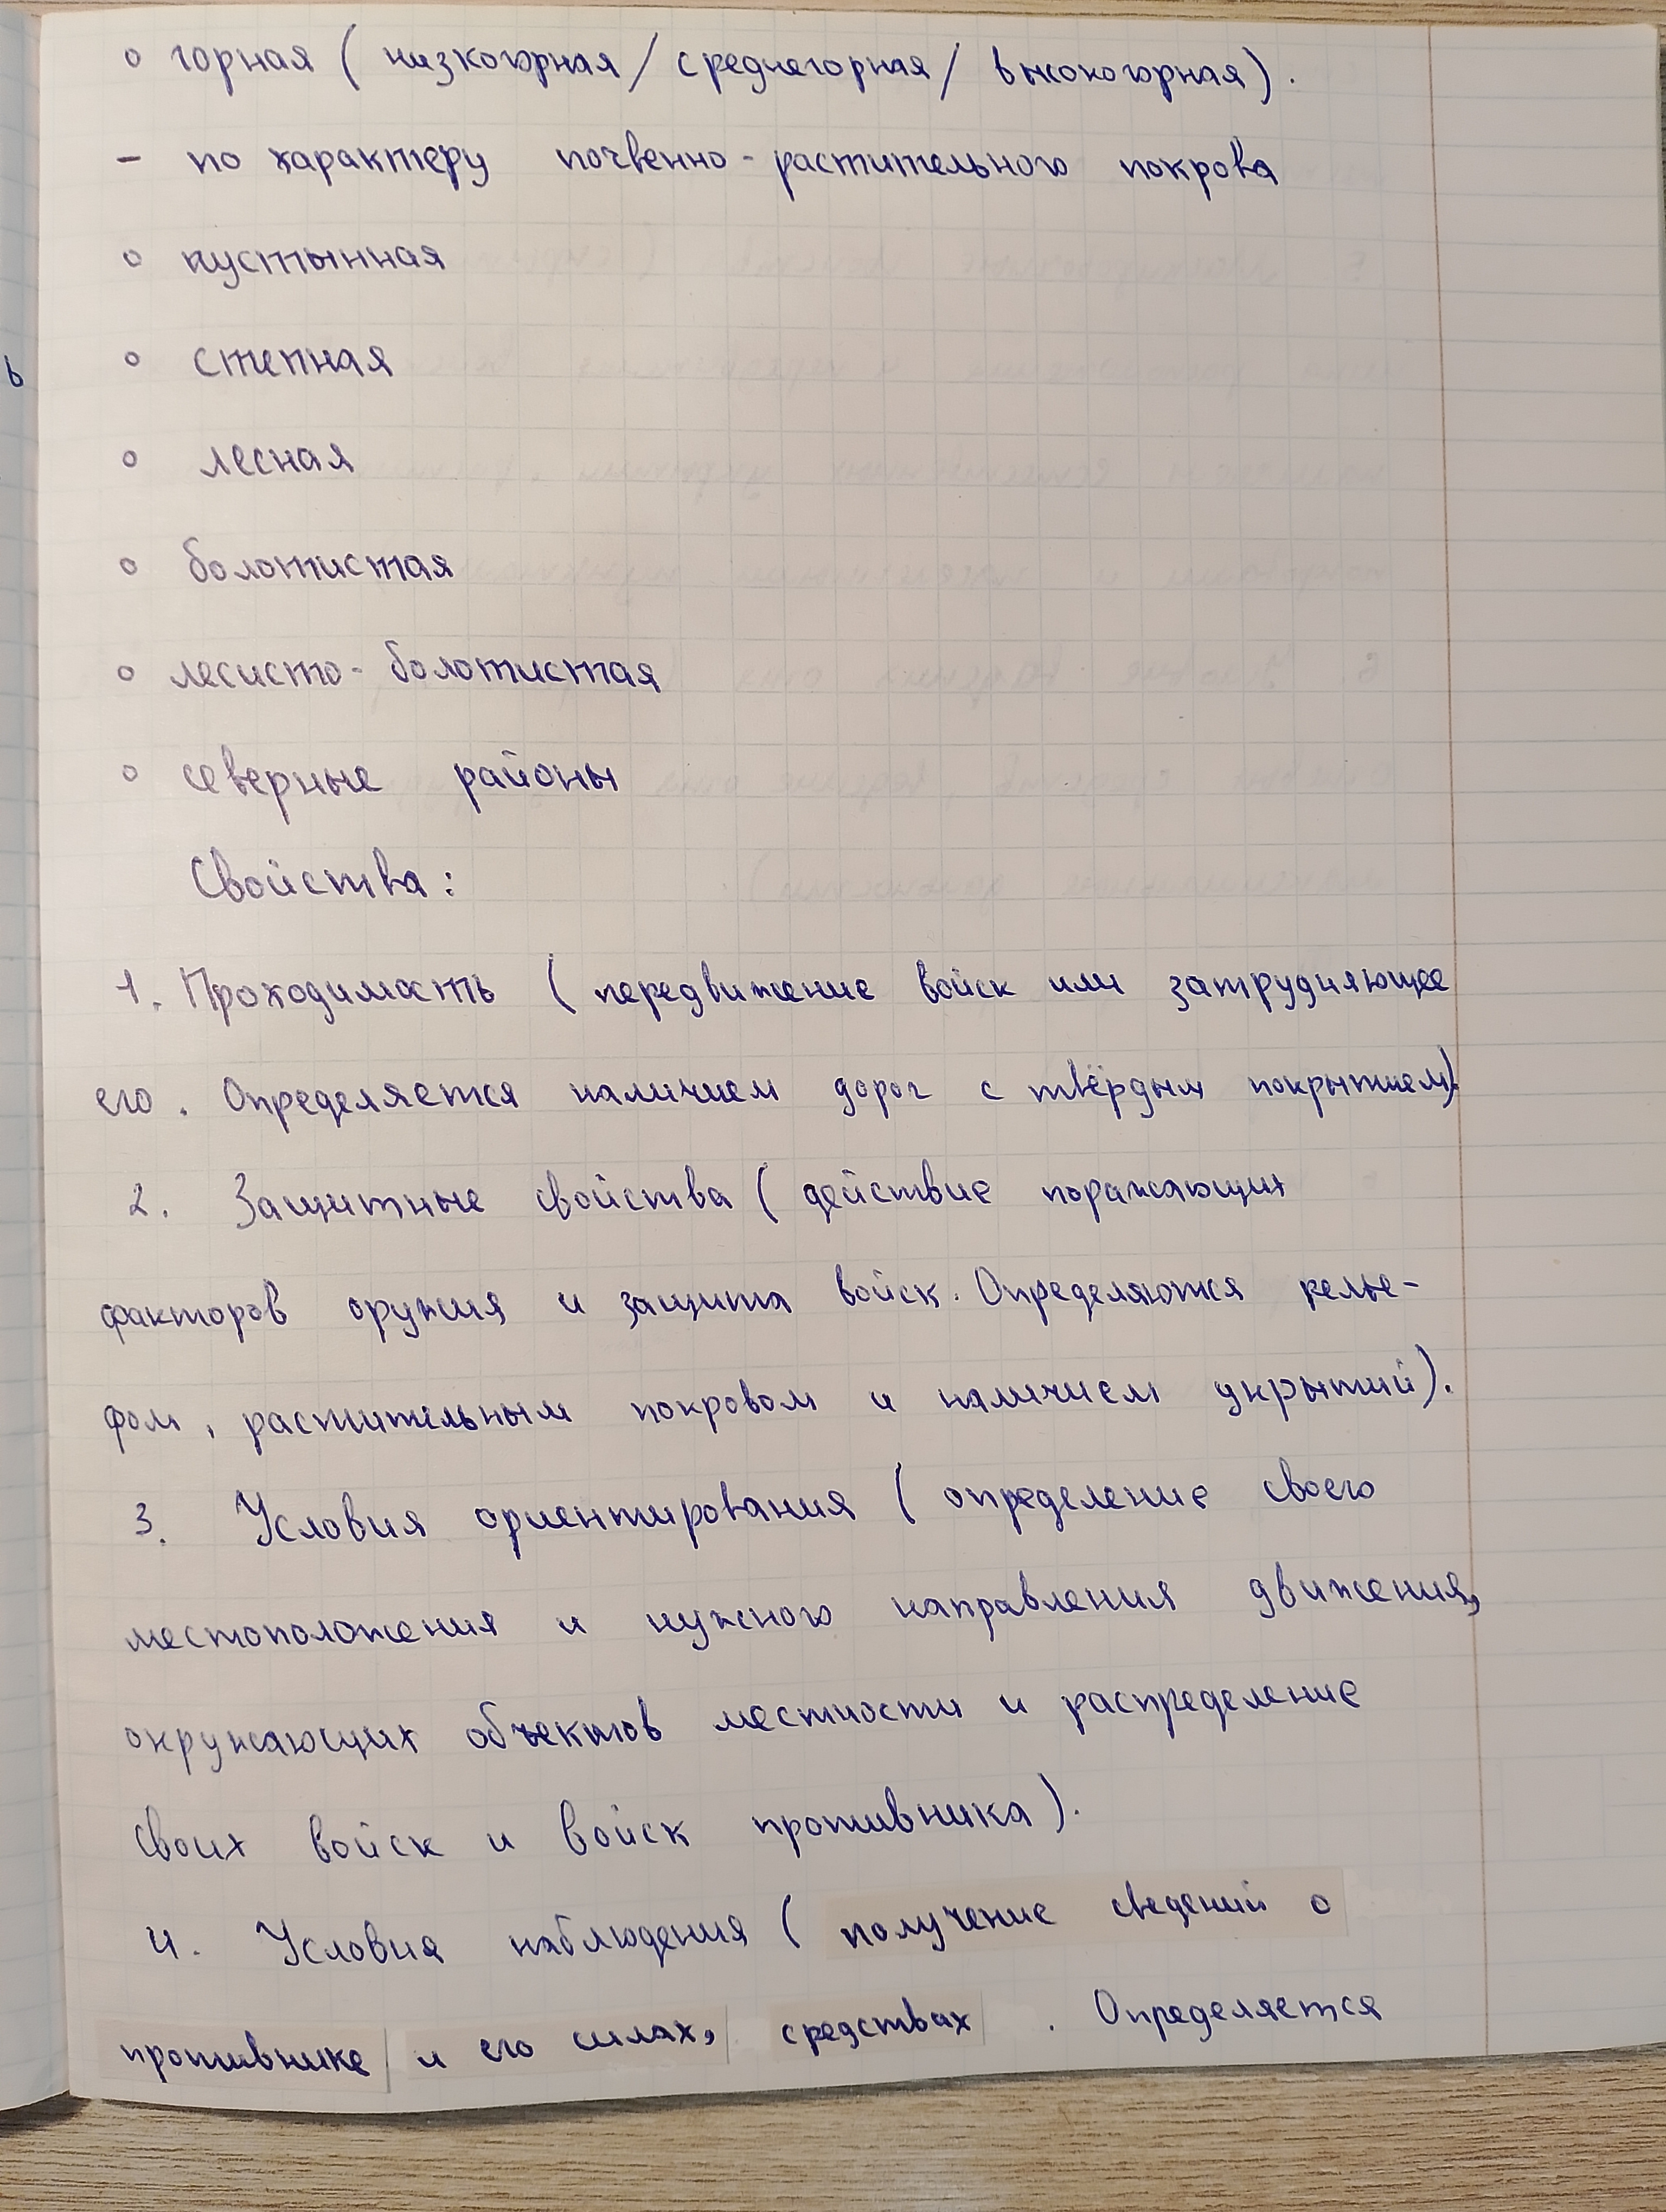 ◦ горная ( низкогорная / среднегорная / высокогорная ) .
- по характеру почвенно - растительного покрова
◦ пустынная
◦ степная
◦ лесная
◦ болотистая
◦ лесисто - болотистая
◦ северные районы
Свойства :
1. Проходимость ( передвижение войск или затрудняющее
его . Определяется наличием дорог с твёрдым покрытием).
2. Защитные свойства ( действие поражающих
факторов оружия и защита войск. Определяются релье-
фом , растительным покровом и наличием укрытий ).
3. Условия ориентирования ( определение своего
местоположения и нужного направления движения,
окружающих объектов местности и распределение
своих войск и войск противника ).
4. Условия наблюдения ( получение сведений о
противнике и его силах, средствах . Определяется
ь